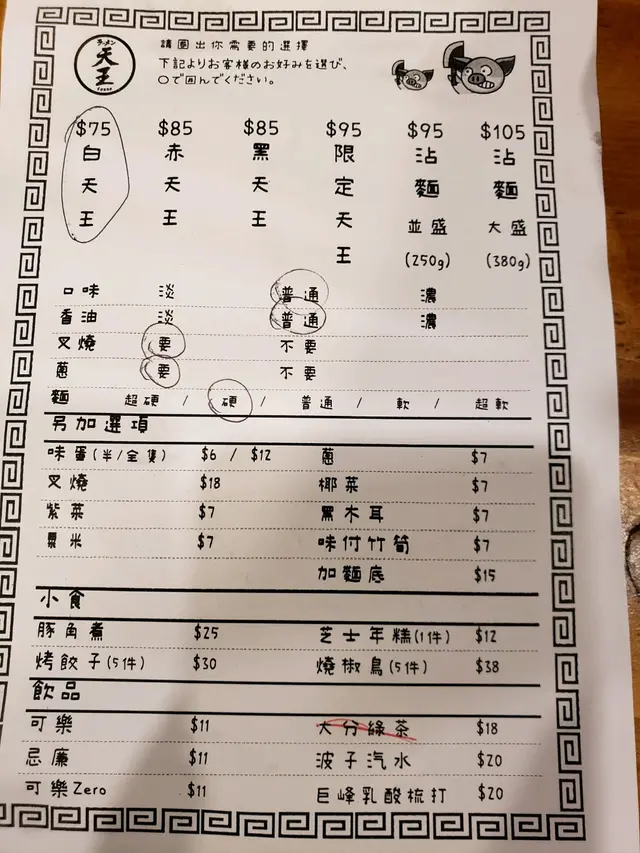 ラーメン 天王
請圈出你需要的選擇
下記よりお客様のお好みを選び、
○で囲んでください。
$75 $85 $85 $95 $95 $105
白天王 赤天王 黑天王 限定天王 沾麵 並盛 (250g) 沾麵 大盛 (380g)
口味 淡 普通 濃
香油 淡 普通 濃
叉燒 要 不要
蔥 要 不要
麵 超硬 / 硬 / 普通 / 軟 / 超軟
另加選項
味蛋(半/全隻) $6 / $12 蔥 $7
叉燒 $18 椰菜 $7
紫菜 $7 黑木耳 $7
粟米 $7 味付竹筍 $7
加麵底 $15
小食
豚角煮 $25 芝士年糕(1件) $12
烤餃子(5件) $30 燒椒鳥(5件) $38
飲品
可樂 $11 大分綠茶 $18
忌廉 $11 波子汽水 $20
可樂Zero $11 巨峰乳酸梳打 $20